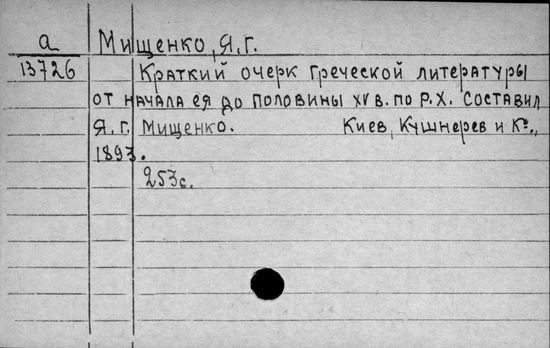 а Мищенко, Я.Г.
13726 Краткий очерк греческой литературы
от начала ея до половины XV в. по Р.Х. Составил
Я.Г. Мищенко. Киев, Кушнерев и Кº.,
1893.
253 с.